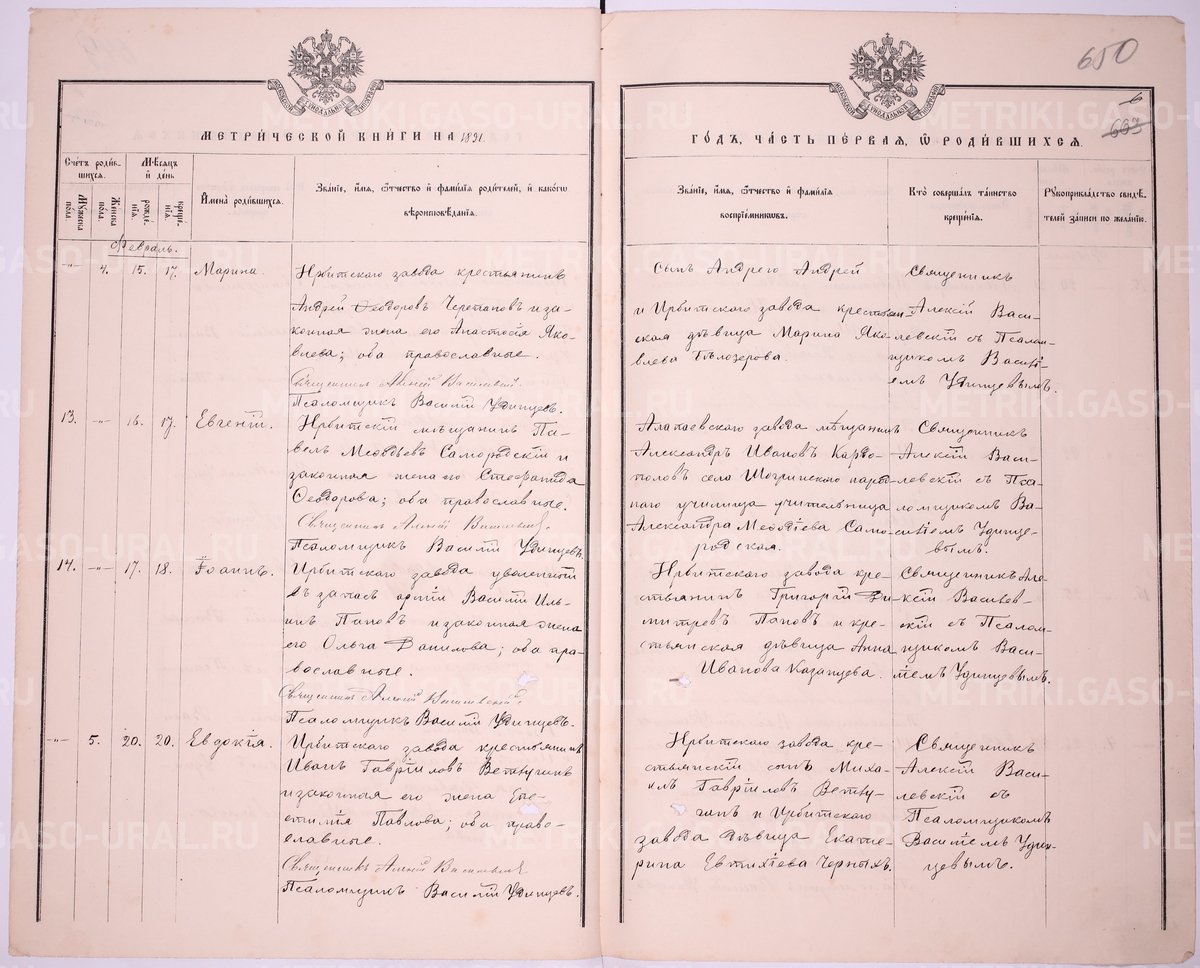 650
6
603
МЕТРИЧЕСКОЙ КНИГИ НА 1891
ГОДЪ, ЧАСТЬ ПЕРВАЯ, Ѡ РОДИВШИХСЯ.
Счетъ родив-
шихся.
Мужеска
пола.
Женска
пола.
Мѣсяцъ
и день
рожде-
нія.
креще-
нія.
Имена родившихся.
Званіе, имя, отчество и фамилія родителей, и какого
вѣроисповѣданія.
Званіе, имя, отчество и фамилія
воспріемниковъ.
Кто совершалъ таинство
крещенія.
Рукоприкладство свидѣ-
телей записи по желанію.
Февраль.
-"- 4. 15. 17. Марина.
Ирбитскаго завода крестьянинъ
Андрей Ѳеодоровъ Черепановъ и за-
конная жена его Анастасія Яко-
влева; оба православные.
Священникъ Алексій Василевскій.
Псаломщикъ Василій Удинцевъ.
Сынъ Андрея Андрей
и Ирбитскаго завода крестьян-
ская дѣвица Марина Яко-
влева Бѣлозерова.
Священникъ
Алексій Васи-
левскій съ Псалом-
щикомъ Васи-
емъ Удинцевымъ.
13. -"- 16. 17. Евгеній.
Ирбитскій мѣщанинъ Па-
велъ Меѳодьевъ Самородскій и
законная жена его Стефанида
Ѳеодорова; оба православные.
Священникъ Алексій Василевскій.
Псаломщикъ Василій Удинцевъ.
Алапаевскаго завода мѣщанинъ
Александръ Ивановъ Кардо-
половъ села Шогринскаго народ-
наго училища учительница
Александра Меѳодіева Само-
родская.
Священникъ
Алексій Васи-
левскій съ Пса-
ломщикомъ Ва-
силіемъ Удинце-
вымъ.
14. -"- 17. 18. Іоаннъ.
Ирбитскаго завода уволенный
въ запасъ арміи Василій Иль-
инъ Поповъ и законная жена
его Ольга Данилова; оба пра-
вославные.
Священникъ Алексій Василевскій.
Псаломщикъ Василій Удинцевъ.
Ирбитскаго завода кре-
стьянинъ Григорій Ди-
митревъ Поповъ и кре-
стьянская дѣвица Анна
Иванова Казанцева.
Священникъ Але-
ксій Васильев-
скій съ Псалом-
щикомъ Васи-
ліемъ Удинцевымъ.
-"- 5. 20. 20. Евдокія.
Ирбитскаго завода крестьянинъ
Иванъ Гавріиловъ Ветлугинъ
и законная его жена Епи-
стимія Павлова; оба право-
славные.
Священникъ Алексій Василевскій
Псаломщикъ Василій Удинцевъ.
Ирбитскаго завода кре-
стьянскій сынъ Миха-
илъ Гавріиловъ Ветлу-
гинъ и Ирбитскаго
завода дѣвица Екате-
рина Евтихіева Черныхъ.
Священникъ
Алексій Васи-
левскій съ
Псаломщикомъ
Василіемъ Удин-
цевымъ.
METRIKI.GASO-URAL.RU